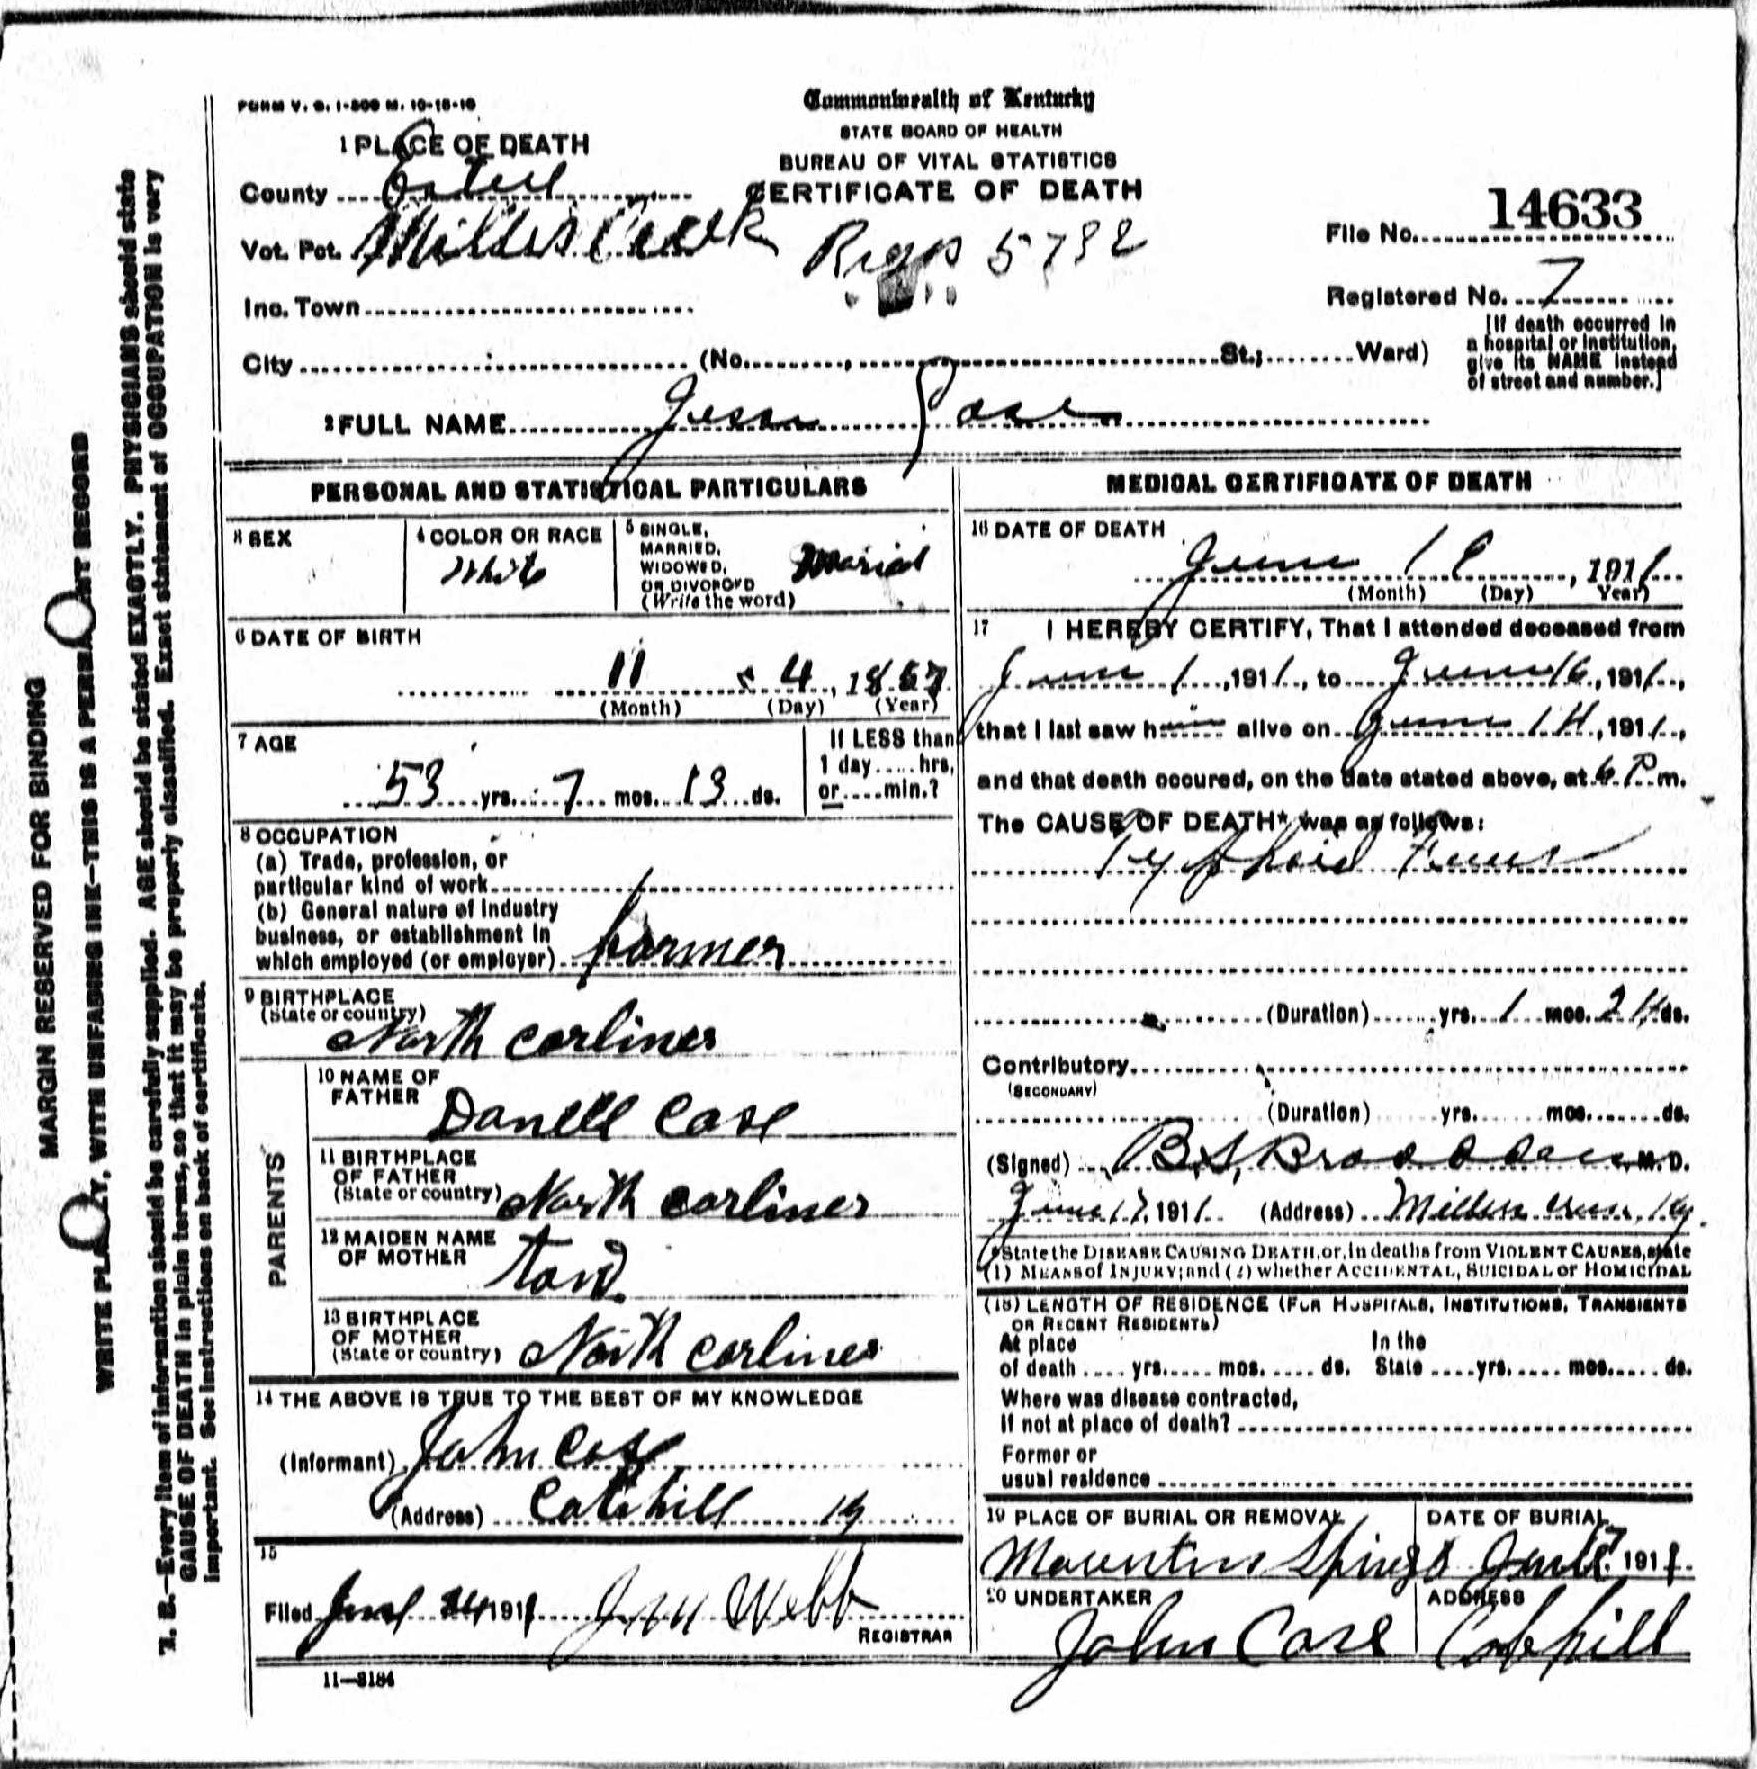 FORM V. S. 1-500 M. 10-18-10
Commonwealth of Kentucky
STATE BOARD OF HEALTH
BUREAU OF VITAL STATISTICS
CERTIFICATE OF DEATH
1 PLACE OF DEATH
County Estill
Vot. Pct. Millers Creek
5782
File No. 14633
Inc. Town
Registered No. 7
[If death occurred in
a hospital or institution,
give its NAME instead
of street and number.]
City (No. St.; Ward)
2 FULL NAME Case
PERSONAL AND STATISTICAL PARTICULARS
3 SEX
4 COLOR OR RACE
White
5 SINGLE,
MARRIED,
WIDOWED,
OR DIVORCED
(Write the word)
Maried
6 DATE OF BIRTH
11 4, 1857
(Month) (Day) (Year)
7 AGE
53 yrs. 7 mos. 13 ds.
If LESS than
1 day ..... hrs.
or .... min.?
8 OCCUPATION
(a) Trade, profession, or
particular kind of work
(b) General nature of industry
business, or establishment in
which employed (or employer) farmer
9 BIRTHPLACE
(State or country)
North carliner
PARENTS
10 NAME OF
FATHER
Danell Case
11 BIRTHPLACE
OF FATHER
(State or country) North carliner
12 MAIDEN NAME
OF MOTHER
13 BIRTHPLACE
OF MOTHER
(State or country) North carliner
14 THE ABOVE IS TRUE TO THE BEST OF MY KNOWLEDGE
(Informant) John Case
(Address) Cobhill Ky
15
Filed 24 1911 Webb
REGISTRAR
11—3184
MEDICAL CERTIFICATE OF DEATH
16 DATE OF DEATH
June, 1911
(Month) (Day) Year)
17 I HEREBY CERTIFY, That I attended deceased from
June 1, 1911, to June 16, 1911,
that I last saw him alive on June 14, 1911,
and that death occured, on the date stated above, at 6 P.m.
The CAUSE OF DEATH* was as follows:
Typhoid Fever
(Duration) yrs. 1 mos. 24 ds.
Contributory
(SECONDARY)
(Duration) yrs. mos. ds.
(Signed) B.S. M.D.
June 17, 1911 (Address) Millers Creek, Ky.
*State the DISEASE CAUSING DEATH, or, in deaths from VIOLENT CAUSES, state
(1) MEANS of INJURY; and (2) whether ACCIDENTAL, SUICIDAL or HOMICIDAL
(18) LENGTH OF RESIDENCE (FOR HOSPITALS, INSTITUTIONS, TRANSIENTS
OR RECENT RESIDENTS)
At place In the
of death .... yrs. .... mos. .... ds. State .... yrs. .... mos. .... ds.
Where was disease contracted,
If not at place of death?
Former or
usual residence
19 PLACE OF BURIAL OR REMOVAL
DATE OF BURIAL
1911
20 UNDERTAKER
John Case
ADDRESS
Cobhill
MARGIN RESERVED FOR BINDING
WRITE PLAINLY, WITH UNFADING INK—THIS IS A PERMANENT RECORD
N. B.—Every item of information should be carefully supplied. AGE should be stated EXACTLY. PHYSICIANS should state
CAUSE OF DEATH in plain terms, so that it may be properly classified. Exact statement of OCCUPATION is very
important. See instructions on back of certificate.